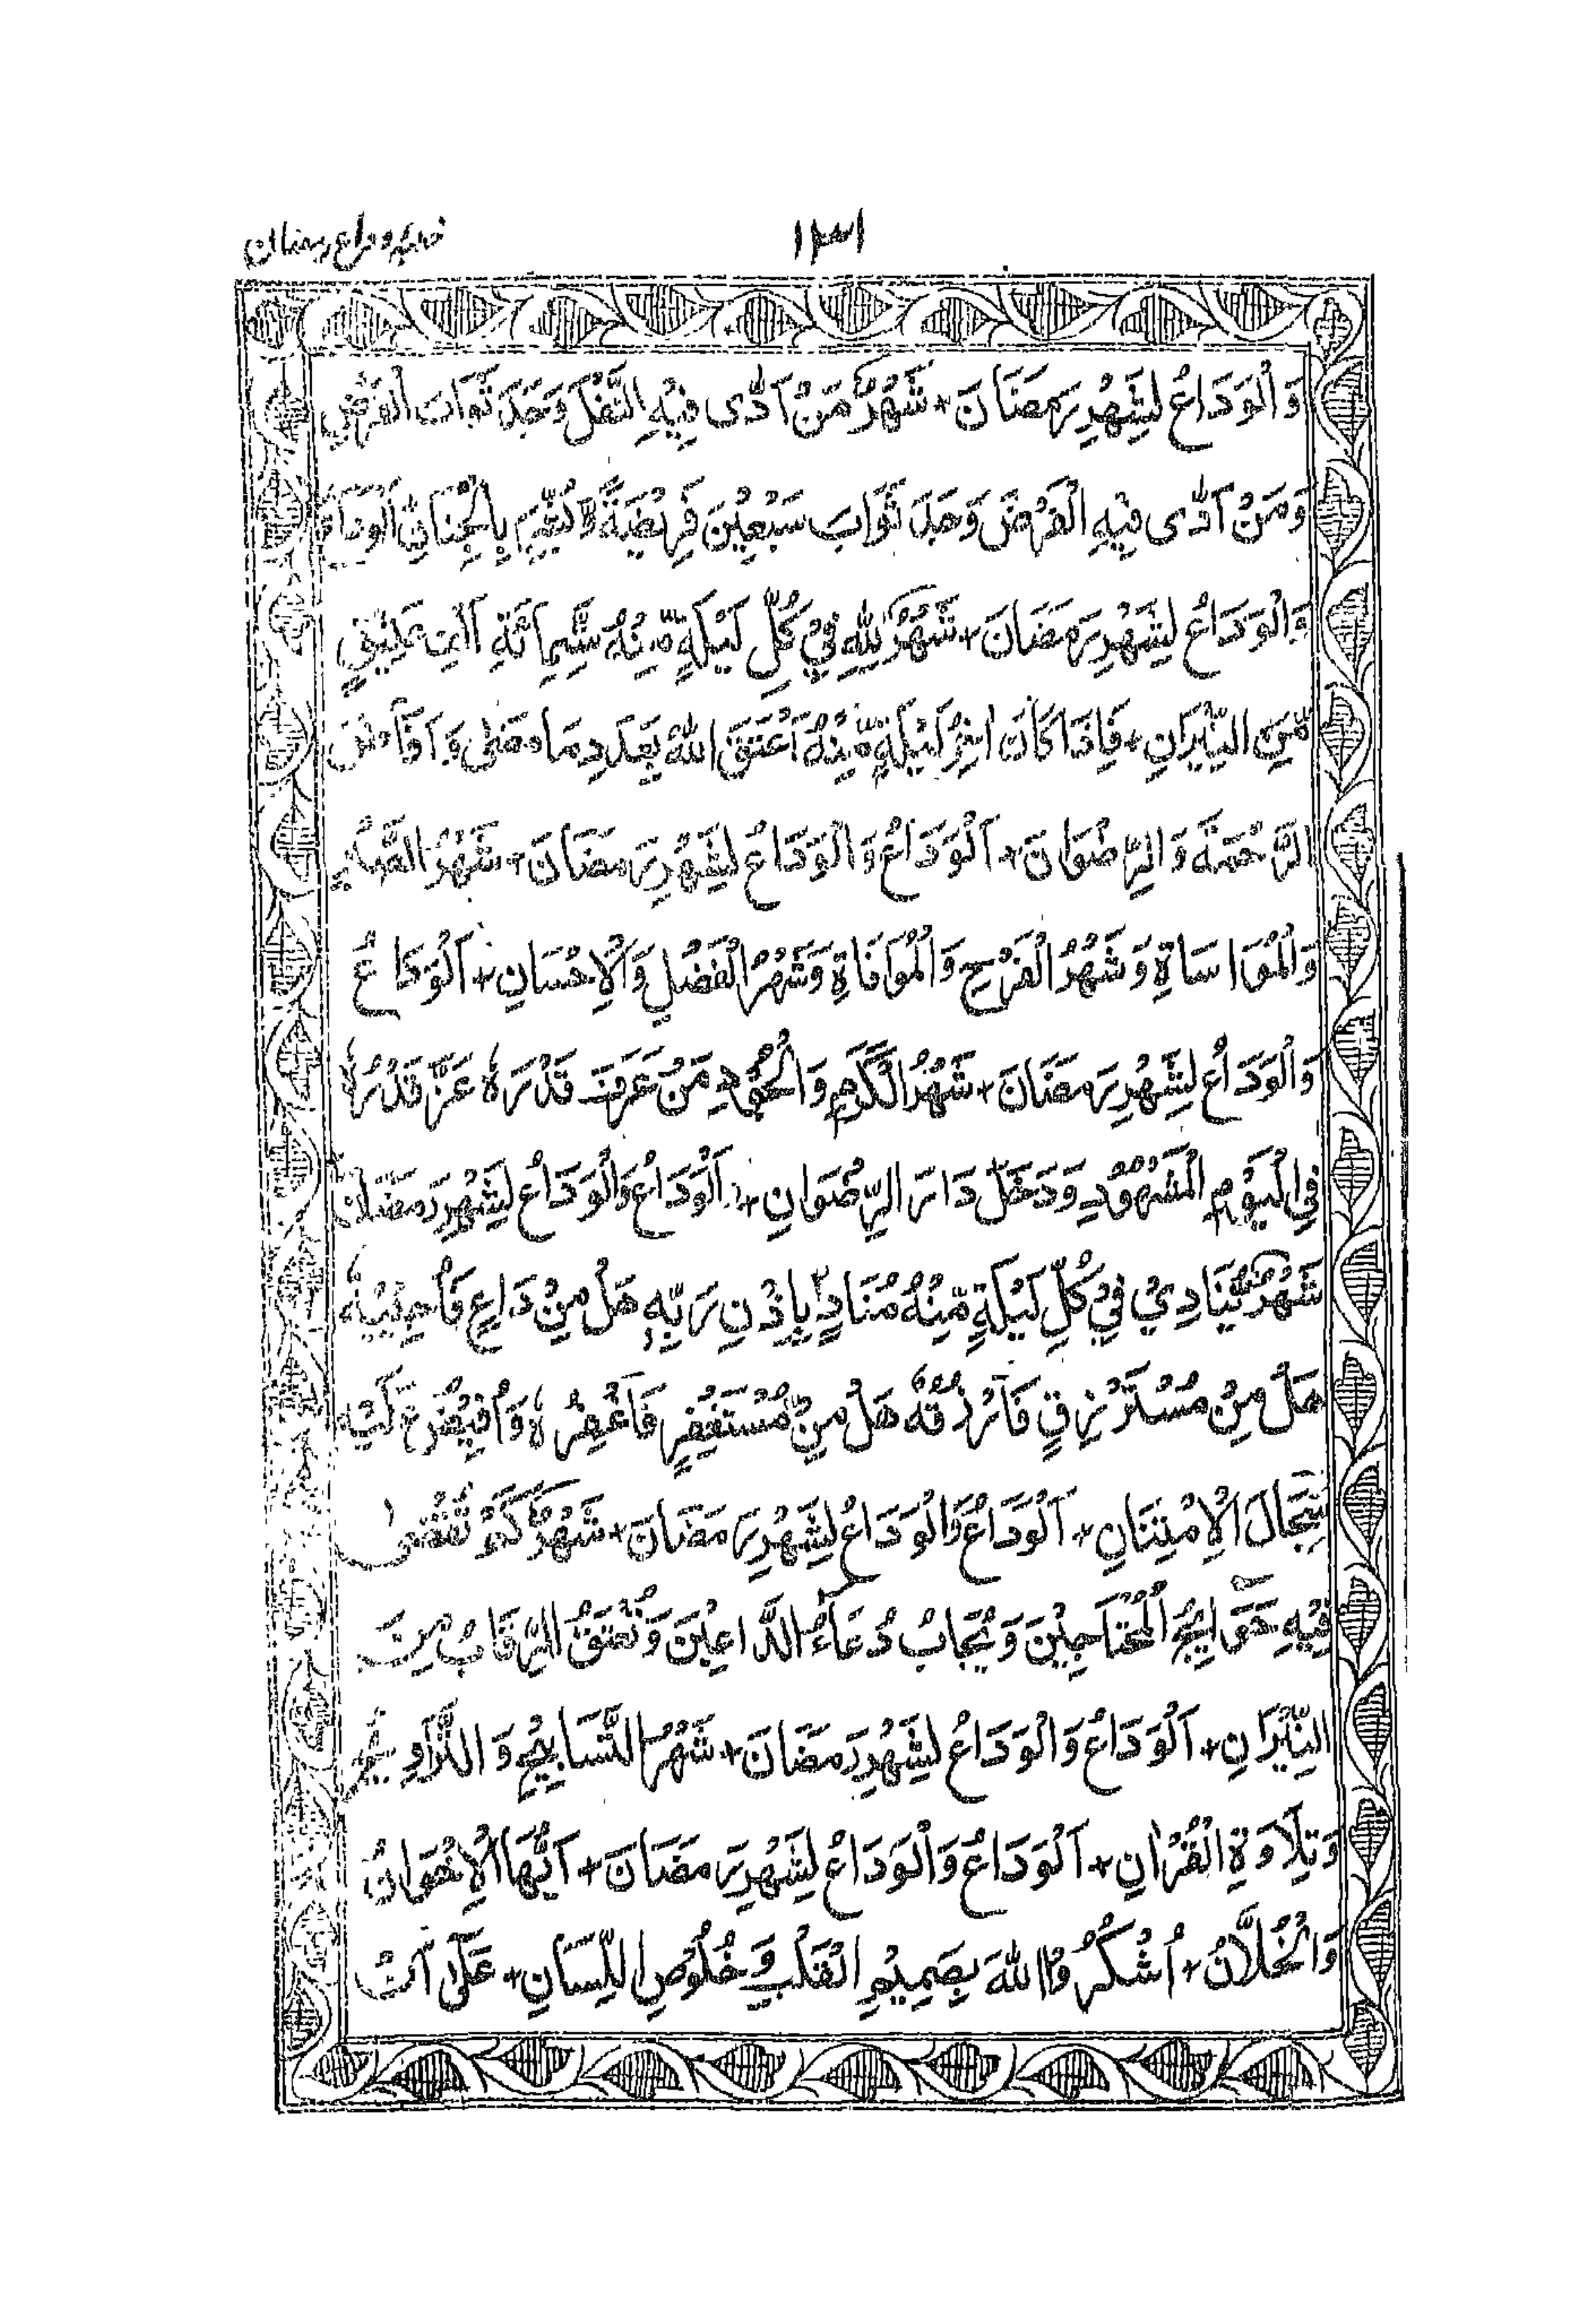 ۱۳۱
خطبہ وداع رمضان
وَالْوَدَاعُ لِشَهْرِ رَمَضَانَ + شَهْرٌ مَّنْ اَدّٰى فِيْهِ النَّفْلَ وَجَدَ ثَوَابَ الْفَرْضِ
وَمَنْ اَدّٰى فِيْهِ الْفَرْضَ وَجَدَ ثَوَابَ سَبْعِيْنَ فَرِيْضَةً بِالْجِنَانِ اَلْوَدَاعُ
وَالْوَدَاعُ لِشَهْرِ رَمَضَانَ + شَهْرٌ لِلّٰهِ فِيْ كُلِّ لَيْلَةٍ مِّنْهُ سِتُّمِائَةِ اَلْفِ عَتِيْقٍ
مِّنَ النِّيْرَانِ + فَاِذَا كَانَ اٰخِرُ لَيْلَةٍ مِّنْهُ اَعْتَقَ اللهُ بِعَدَدِ مَا مَضٰى وَاَفَاضَ
الرَّحْمَةَ وَالرِّضْوَانَ + اَلْوَدَاعُ وَالْوَدَاعُ لِشَهْرِ رَمَضَانَ + شَهْرُ الصَّبْرِ
وَالْمُوَاسَاةِ وَشَهْرُ الْفَرْحِ وَالْمُوَافَاةِ وَشَهْرُ الْفَضْلِ وَالْاِحْسَانِ + اَلْوَدَاعُ
وَالْوَدَاعُ لِشَهْرِ رَمَضَانَ + شَهْرُ الْكَرَمِ وَالْجُوْدِ مَنْ عَرَفَ قَدْرَهٗ عَزَّ قَدْرُهٗ
فِي الْيَوْمِ الْمَشْهُوْدِ وَدَخَلَ دَارَ الرِّضْوَانِ + اَلْوَدَاعُ وَالْوَدَاعُ لِشَهْرِ رَمَضَانَ
شَهْرٌ يُّنَادِيْ فِيْ كُلِّ لَيْلَةٍ مِّنْهُ مُنَادٍ بِاِذْنِ رَبِّهٖ هَلْ مِنْ دَاعٍ فَاُجِيْبُهٗ
هَلْ مِنْ مُسْتَرْزِقٍ فَاَرْزُقُهٗ هَلْ مِنْ مُّسْتَغْفِرٍ فَاَغْفِرُهٗ وَاُفِيْضُ عَلَيْهِ
سِجَالَ الْاِمْتِنَانِ + اَلْوَدَاعُ وَالْوَدَاعُ لِشَهْرِ رَمَضَانَ + شَهْرٌ كَمْ تُقْضٰى
فِيْهِ حَوَآئِجُ الْمُحْتَاجِيْنَ وَيُجَابُ دُعَآءُ الدَّاعِيْنَ وَتُعْتَقُ الرِّقَابُ مِنَ
النِّيْرَانِ + اَلْوَدَاعُ وَالْوَدَاعُ لِشَهْرِ رَمَضَانَ + شَهْرُ التَّسَابِيْحِ وَالتَّرَاوِيْحِ
وَتِلَاوَةِ الْقُرْاٰنِ + اَلْوَدَاعُ وَالْوَدَاعُ لِشَهْرِ رَمَضَانَ + اَيُّهَا الْاِخْوَانُ
وَالْخُلَّانُ + اُشْكُرُوا اللهَ بِصَمِيْمِ الْقَلْبِ وَخُلُوْصِ اللِّسَانِ + عَلٰى اَنْ